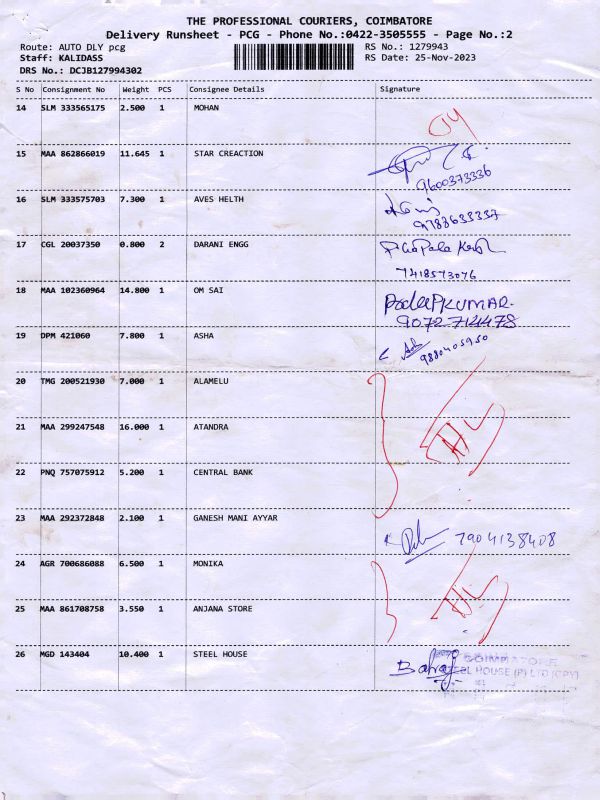 THE PROFESSIONAL COURIERS, COIMBATORE
Delivery Runsheet - PCG - Phone No.:0422-3505555 - Page No.:2
Route: AUTO DLY pcg RS No.: 1279943
Staff: KALIDASS RS Date: 25-Nov-2023
DRS No.: DCJB127994302
S No Consignment No Weight PCS Consignee Details Signature
14 SLM 333565175 2.500 1 MOHAN
15 MAA 862866019 11.645 1 STAR CREACTION
9600373336
16 SLM 333575703 7.300 1 AVES HELTH
9788633337
17 CGL 20037350 0.800 2 DARANI ENGG
7418573076
18 MAA 102360964 14.800 1 OM SAI
9072714478
19 DPM 421060 7.800 1 ASHA
9880405950
20 TMG 200521930 7.000 1 ALAMELU
21 MAA 299247548 16.000 1 ATANDRA
22 PNQ 757075912 5.200 1 CENTRAL BANK
23 MAA 292372848 2.100 1 GANESH MANI AYYAR
7904138408
24 AGR 700686088 6.500 1 MONIKA
25 MAA 861708758 3.550 1 ANJANA STORE
26 MGD 143404 10.400 1 STEEL HOUSE
COIMBATORE
STEEL HOUSE (P) LTD (CPY)